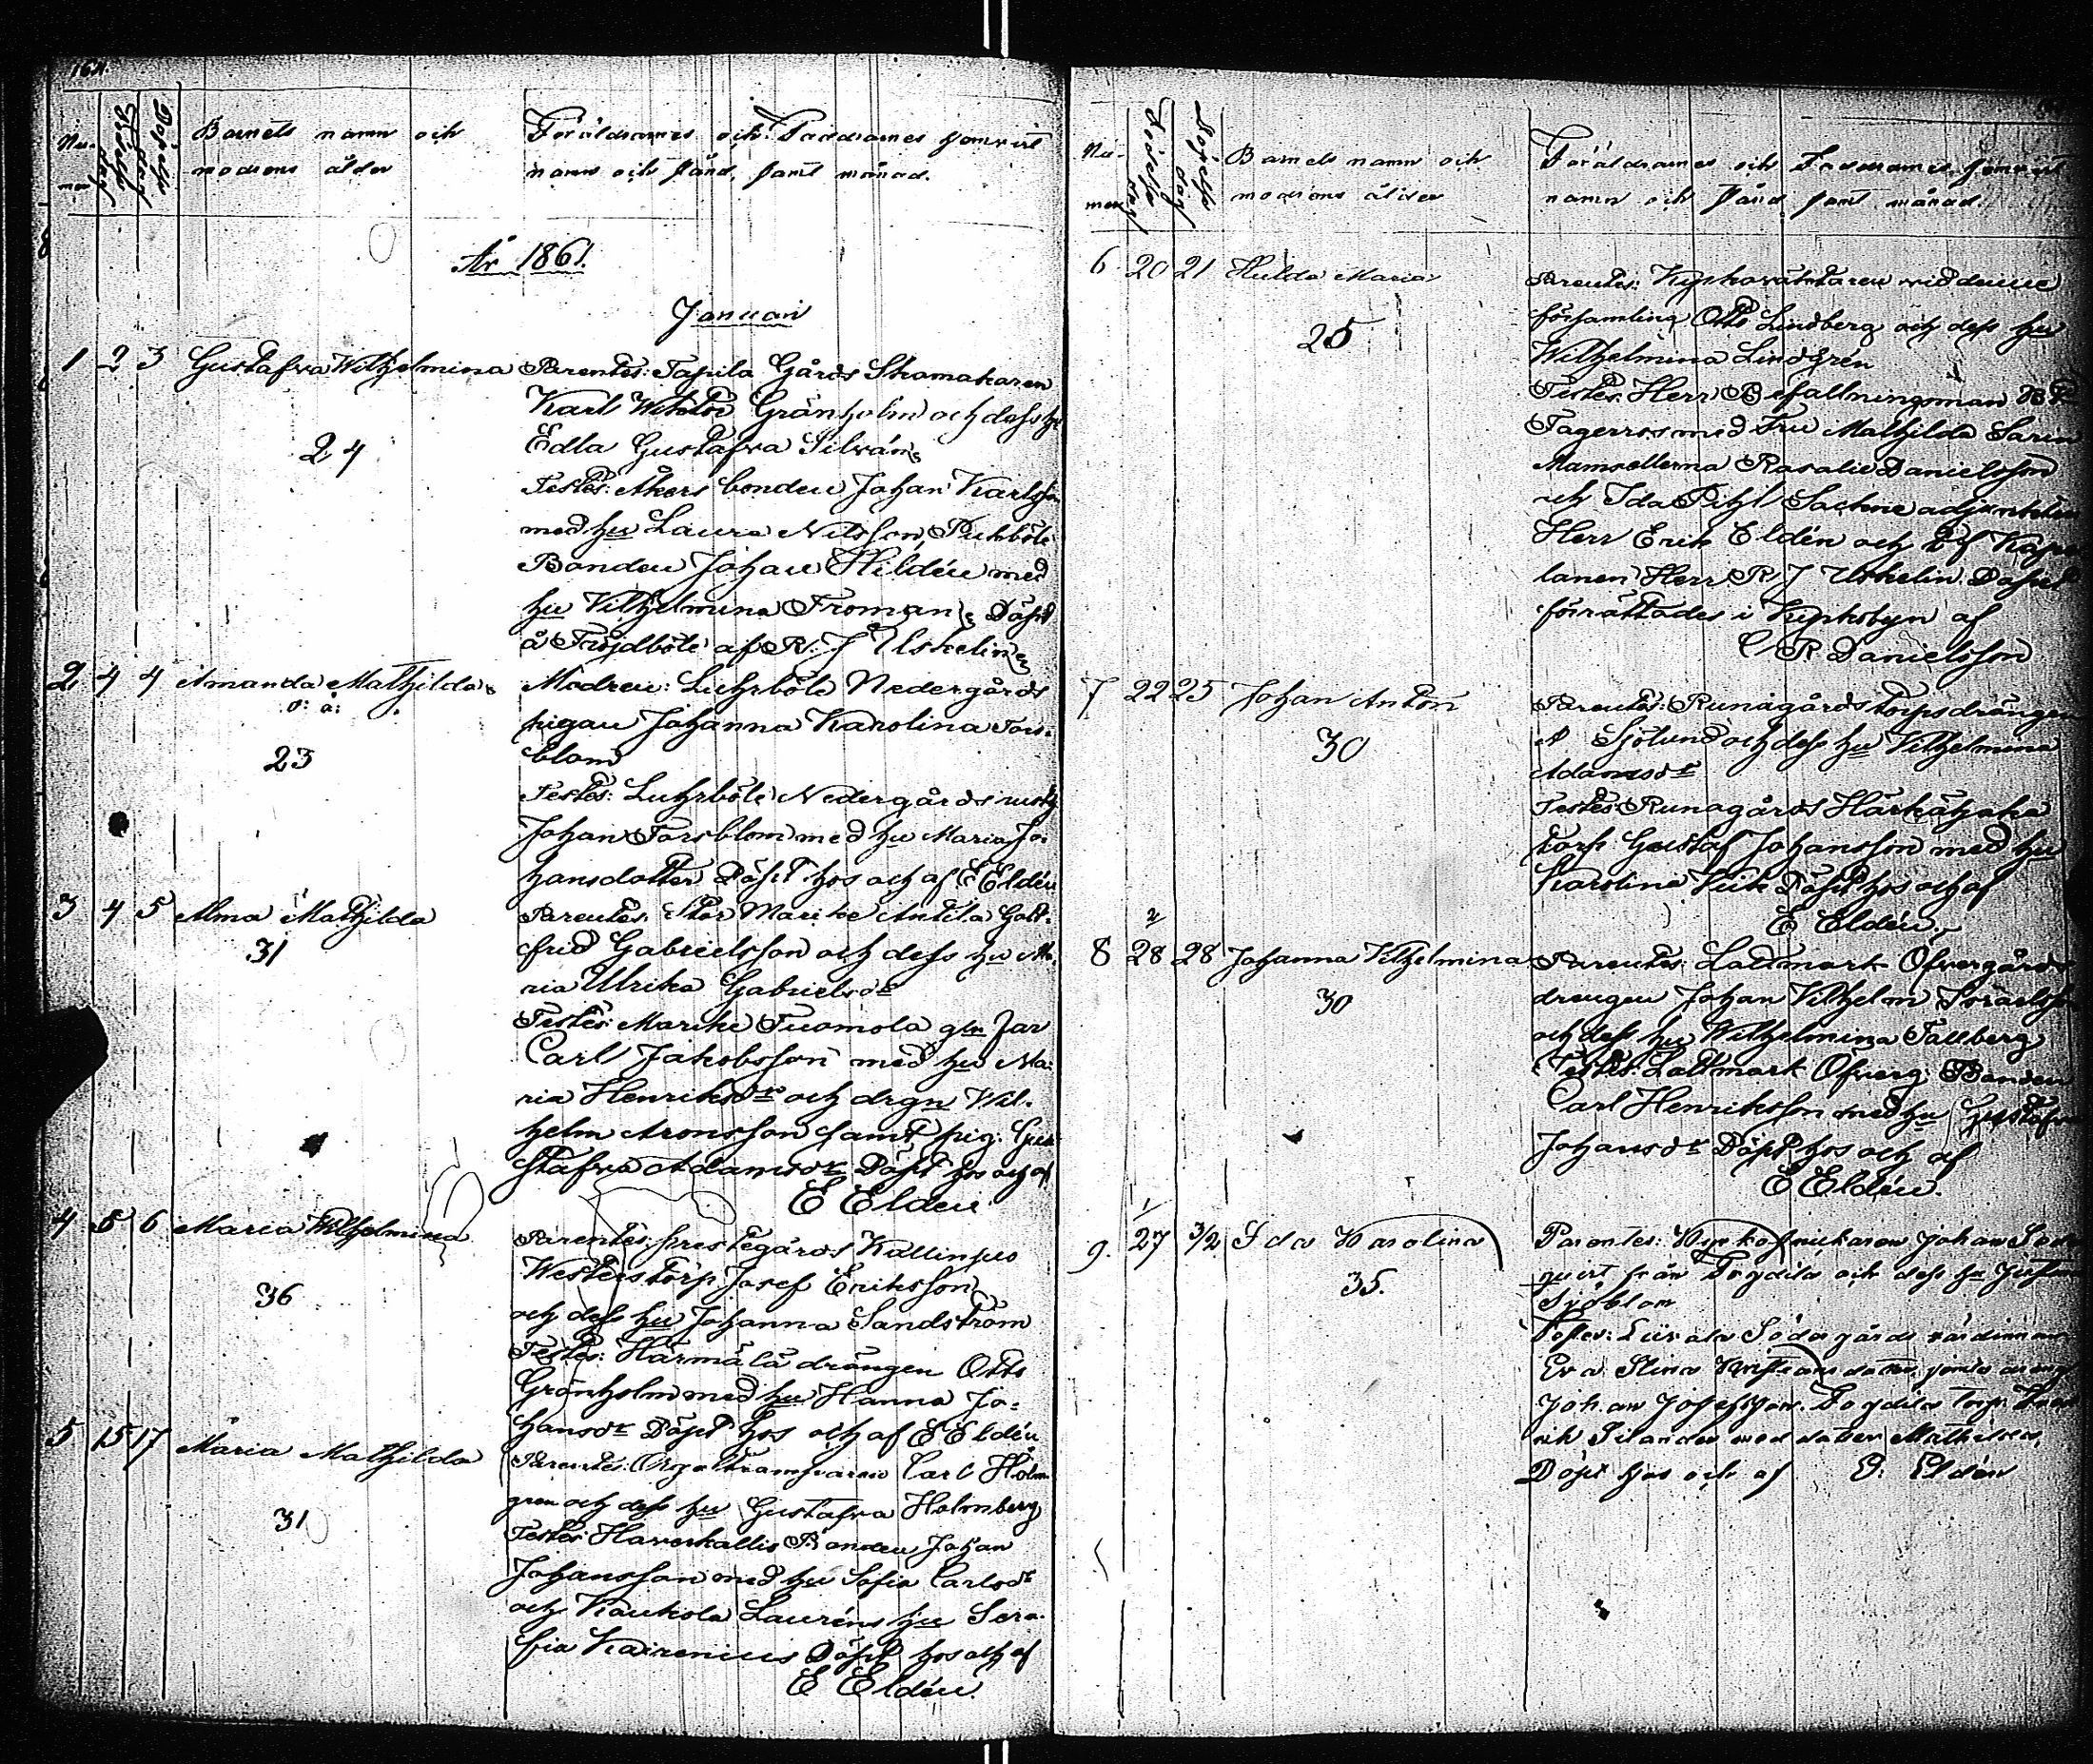 164.
Nu-
mer
Födelse
dag
Döpelse
dag
Barnets namn och
modrens ålder
Föräldrarnes och Faddrarnes hemvist
namn och stånd, samt månad.
År 1861.
Januari
1 2 3 Gustafva Wilhelmina
24
Parentes: Tapila Gårds Skomakaren
Karl Wiktor Grönholm och dess hu
Edla Gustafva Silvén
Testes: Åkers bonden Johan Karlsson
med hu Laura Nilsson, Puhkböle
Bonden Johan Hildén med
hu Vilhelmina Froman, Döpt
å Fröjdböle af R. J Uskelin
2 4 4 Amanda Mathilda
o: ä:
23
Modren: Luhrböle Nedergårds
pigan Johanna Karolina Fors-
blom
Testes: Luhrböle Nedergårds rusth
Johan Forsblom med hu Maria Jo-
hansdotter Döpt hos och af E Eldén
3 4 5 Alma Mathilda
31
Parentes: Stor Marike Antila Gott-
frid Gabrielsson och dess hu Ma-
ria Ulrika Gabrielsdr
Testes: Marike Tuomola gln Jar
Carl Jakobsson med hu Ma-
ria Henriksdr och drgn Wil-
helm Aronsson samt pig. Gu-
stafva Adamsdr Döpt hos och af
E Eldén
4 5 6 Maria Wilhelmina
36
Parentes: prestegårds Kallinpes
Westers torp Josef Eriksson
och dess hu Johanna Sandström
Testes: Härmälä drängen Otto
Grönholm med hu Hanna Jo-
hansdr Döpt hos och af E Eldén
5 15 17 Maria Mathilda
31
Parentes: Orgeltramparen Carl Holm-
gren och dess hu Gustafva Holmberg
Testes: Haverkallis Bonden Johan
Johansson med hu Sofia Carlsdr
och Kaukola Lauréns hu Sera-
fia Kairenius Döpt hos och af
E Eldén.
Nu-
mer
Födelse
dag
Döpelse
dag
Barnets namn och
modrens ålder
Föräldrarnes och Faddrarnes hemvist
namn och stånd samt månad.
6 20 21 Hulda Maria
25
Parentes: Kyrkovaktaren vid denne
församling Otto Lindberg och dess hu
Wilhelmina Lindgrén
Testes: Herr Befallningsman
Fagerros med Fru Mathilda Sarin
Mamsellerna Rosalie Danielsson
och Ida Pihl Sockne adjunkten
Herr Erik Eldén och Kape
lanen Herr R J Uskelin Döpet
förrättades i Kyrkobyn af
C R Danielsson
7 22 25 Johan Anton
30
Parentes: Runagårds torps drängen
A Sjölund och dess hu Vilhelmina
Adamsdr
Testes: Runagårds Härkähaka
torp Gustaf Johansson med hu
Karolina Veik Döpt hos och af
E Eldén.
8 28 28 Johanna Vilhelmina
30
Parentes: Lattmark Öfvergårds
drengen Johan Vilhelm Israelsson
och dess hu Wilhelmina Tallberg
Testes: Lattmark Öfverg: Bonden
Carl Henriksson med hu Gustafva
Johansdr Döpt hos och af
E Eldén.
9. 27 3/2 Ida Karolina
35.
Parentes: Kyrkosnickaren Johan Söder
quist från Toydila och dess hu
Sjöblom
Testes: Liivala Södergårds värdinnan
Eva Stina Kristiansdotter, jemte dreng
Johan Josefsson. Toydila torp.
rik Silander med dotter Mathilda,
Döpt hos och af E: Eldén